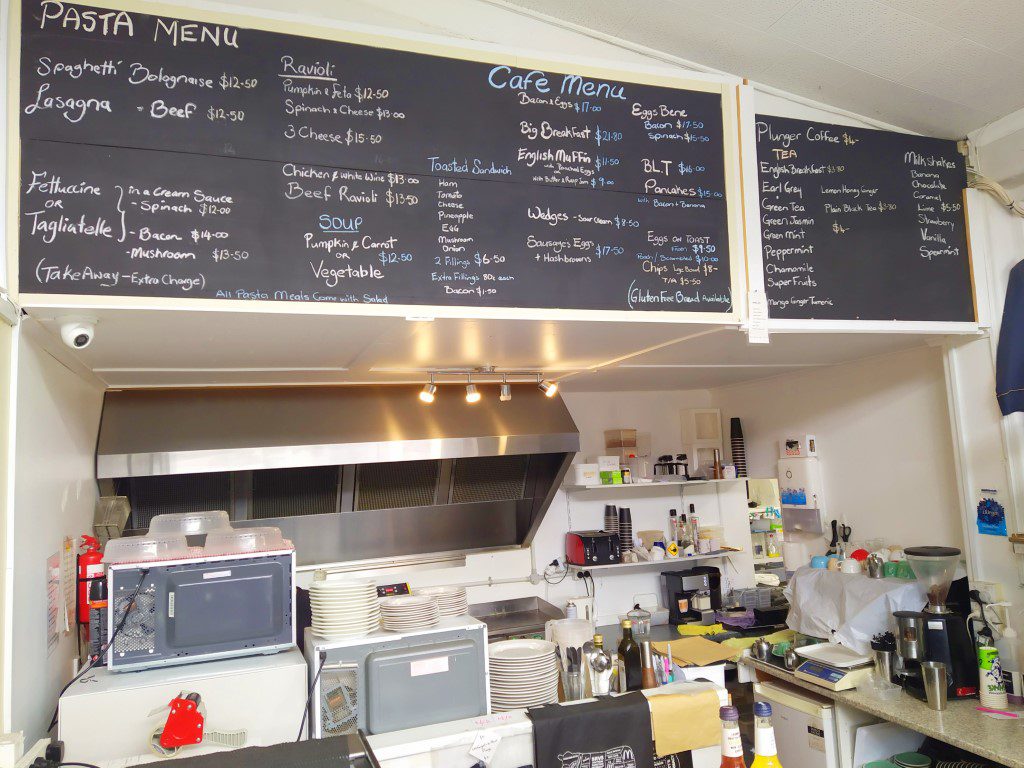 PASTA MENU
Spaghetti Bolognaise $12-50
Lasagna - Beef $12-50
Fettuccine
OR
Tagliatelle
in a Cream Sauce
- Spinach $12-00
- Bacon $14-00
- Mushroom $13-50
(TakeAway - Extra Charge)
Ravioli
Pumpkin & Feta $12-50
Spinach & Cheese $13-00
3 Cheese $15-50
Chicken & White Wine $13-00
Beef Ravioli $13-50
SOUP
Pumpkin & Carrot
OR $12-50
Vegetable
All Pasta Meals Come with Salad
Cafe Menu
Toasted Sandwich
Ham
Tomato
Cheese
Pineapple
Egg
Mushroom
Onion
2 Fillings $6-50
Extra Fillings 80c each
Bacon $1-50
Bacon & Eggs $17-00
Big Breakfast $21-80
English Muffin
with Poached Eggs $11-50
with Butter & Jam $9-00
Wedges - Sour Cream $8-50
Sausages Eggs
+ Hashbrowns $17-50
Eggs Bene
Bacon $17-50
Spinach $15-50
BLT $16-00
Pancakes $15-00
with Bacon + Banana
Eggs on Toast
Fried $9-50
Poach / Scrambled $10-00
Chips Lge Bowl $8-
T/A $5-50
(Gluten Free Bread Available)
Plunger Coffee $4-
TEA
English Breakfast $3-80
Earl Grey
Green Tea
Green Jasmin
Green Mint
Peppermint
Chamomile
Super Fruits
Mango Ginger Turmeric
Lemon Honey Ginger
Plain Black Tea $3-80
$4-
Milkshakes
Banana
Chocolate
Caramel
Lime $5-50
Strawberry
Vanilla
Spearmint